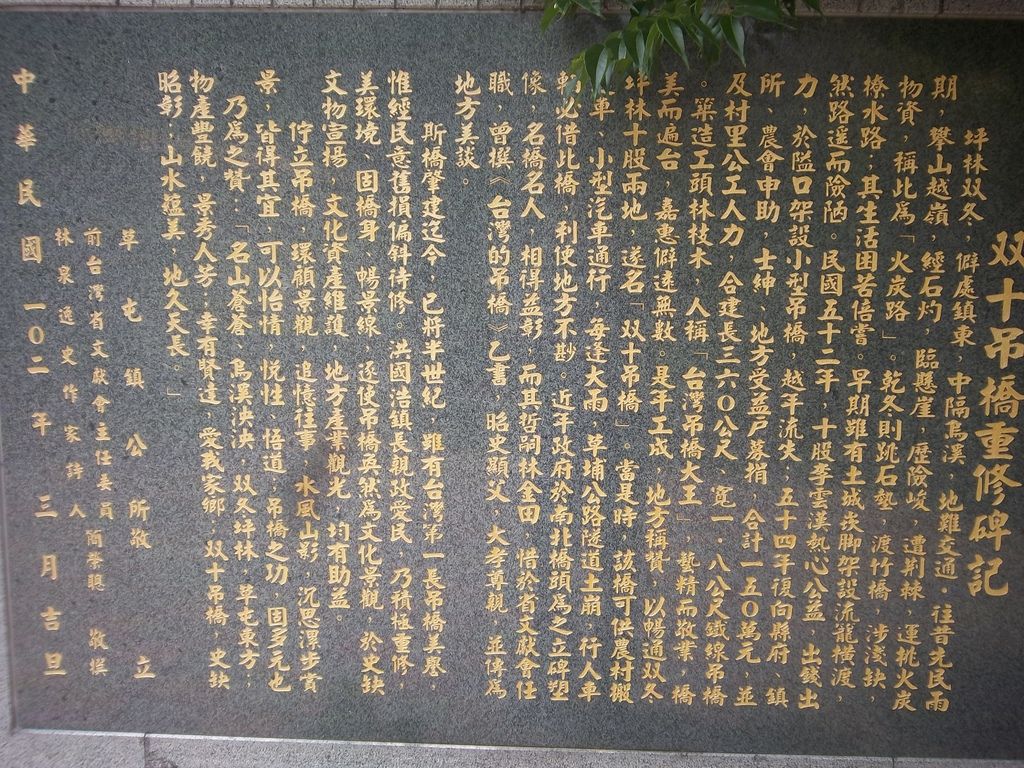 双十吊橋重修碑記
坪林双冬，僻處鎮東，中隔烏溪，地難交通。往昔先民雨
期，攀山越嶺，經石灼，臨懸崖，歷險峻，遭荆棘，運桃火炭
物資，稱此爲「火炭路」。乾冬則跳石墊，渡竹橋，涉淺缺，
撩水路；其生活困苦倍嘗。早期雖有土城崁脚架設流籠橫渡，
然路遥而險陋。民國五十二年，十股李雲漢熱心公益，出錢出
力，於隘口架設小型吊橋，越年流失，五十四年復向縣府、鎮
所、農會申助，士紳、地方受益戶募捐，合計一五0萬元，並
及村里公工人力，合建長三六0公尺、寬一．八公尺鐵線吊橋
。築造工頭林枝木，人稱「台灣吊橋大王」，藝精而敬業，橋
美而遍台，嘉惠僻遠無數。是年工成，地方稱贊，以暢通双冬
坪林十股兩地，遂名「双十吊橋」。當是時，該橋可供農村搬
車、小型汽車通行，每逢大雨，草埔公路隧道土崩，行人車
輛必借此橋，利便地方不尠。近年政府於南北橋頭爲之立碑塑
像，名橋名人，相得益彰，而其哲嗣林金田，惜於省文獻會任
職，曾撰《台灣的吊橋》乙書，昭史顯父，大孝尊親，並傳爲
地方美談。
斯橋肇建迄今，已將半世紀，雖有台灣第一長吊橋美譽，
惟經民意舊損偏斜待修。洪國浩鎮長親政愛民，乃積極重修，
美環境、固橋身、暢景線，逐使吊橋奐然爲文化景觀，於史缺
文物宣揚，文化資產維護，地方產業觀光，均有助益。
佇立吊橋，環顧景觀，追憶往事，水風山影，沉思漂步賞
景，皆得其宜，可以怡情，悦性、悟道；吊橋之功，固多元也
乃爲之贊：「名山蒼蒼，烏溪泱泱，双冬坪林，草屯東方；
物產豐饒，景秀人芳；幸有賢達，愛我家鄉；双十吊橋，史缺
昭彰；山水蘊美，地久天長。」
草屯鎮公所敬立
前台灣省文獻會主任委員 簡榮聰 敬撰
林泉逸史作家詩人
中華民國一0二年三月吉旦